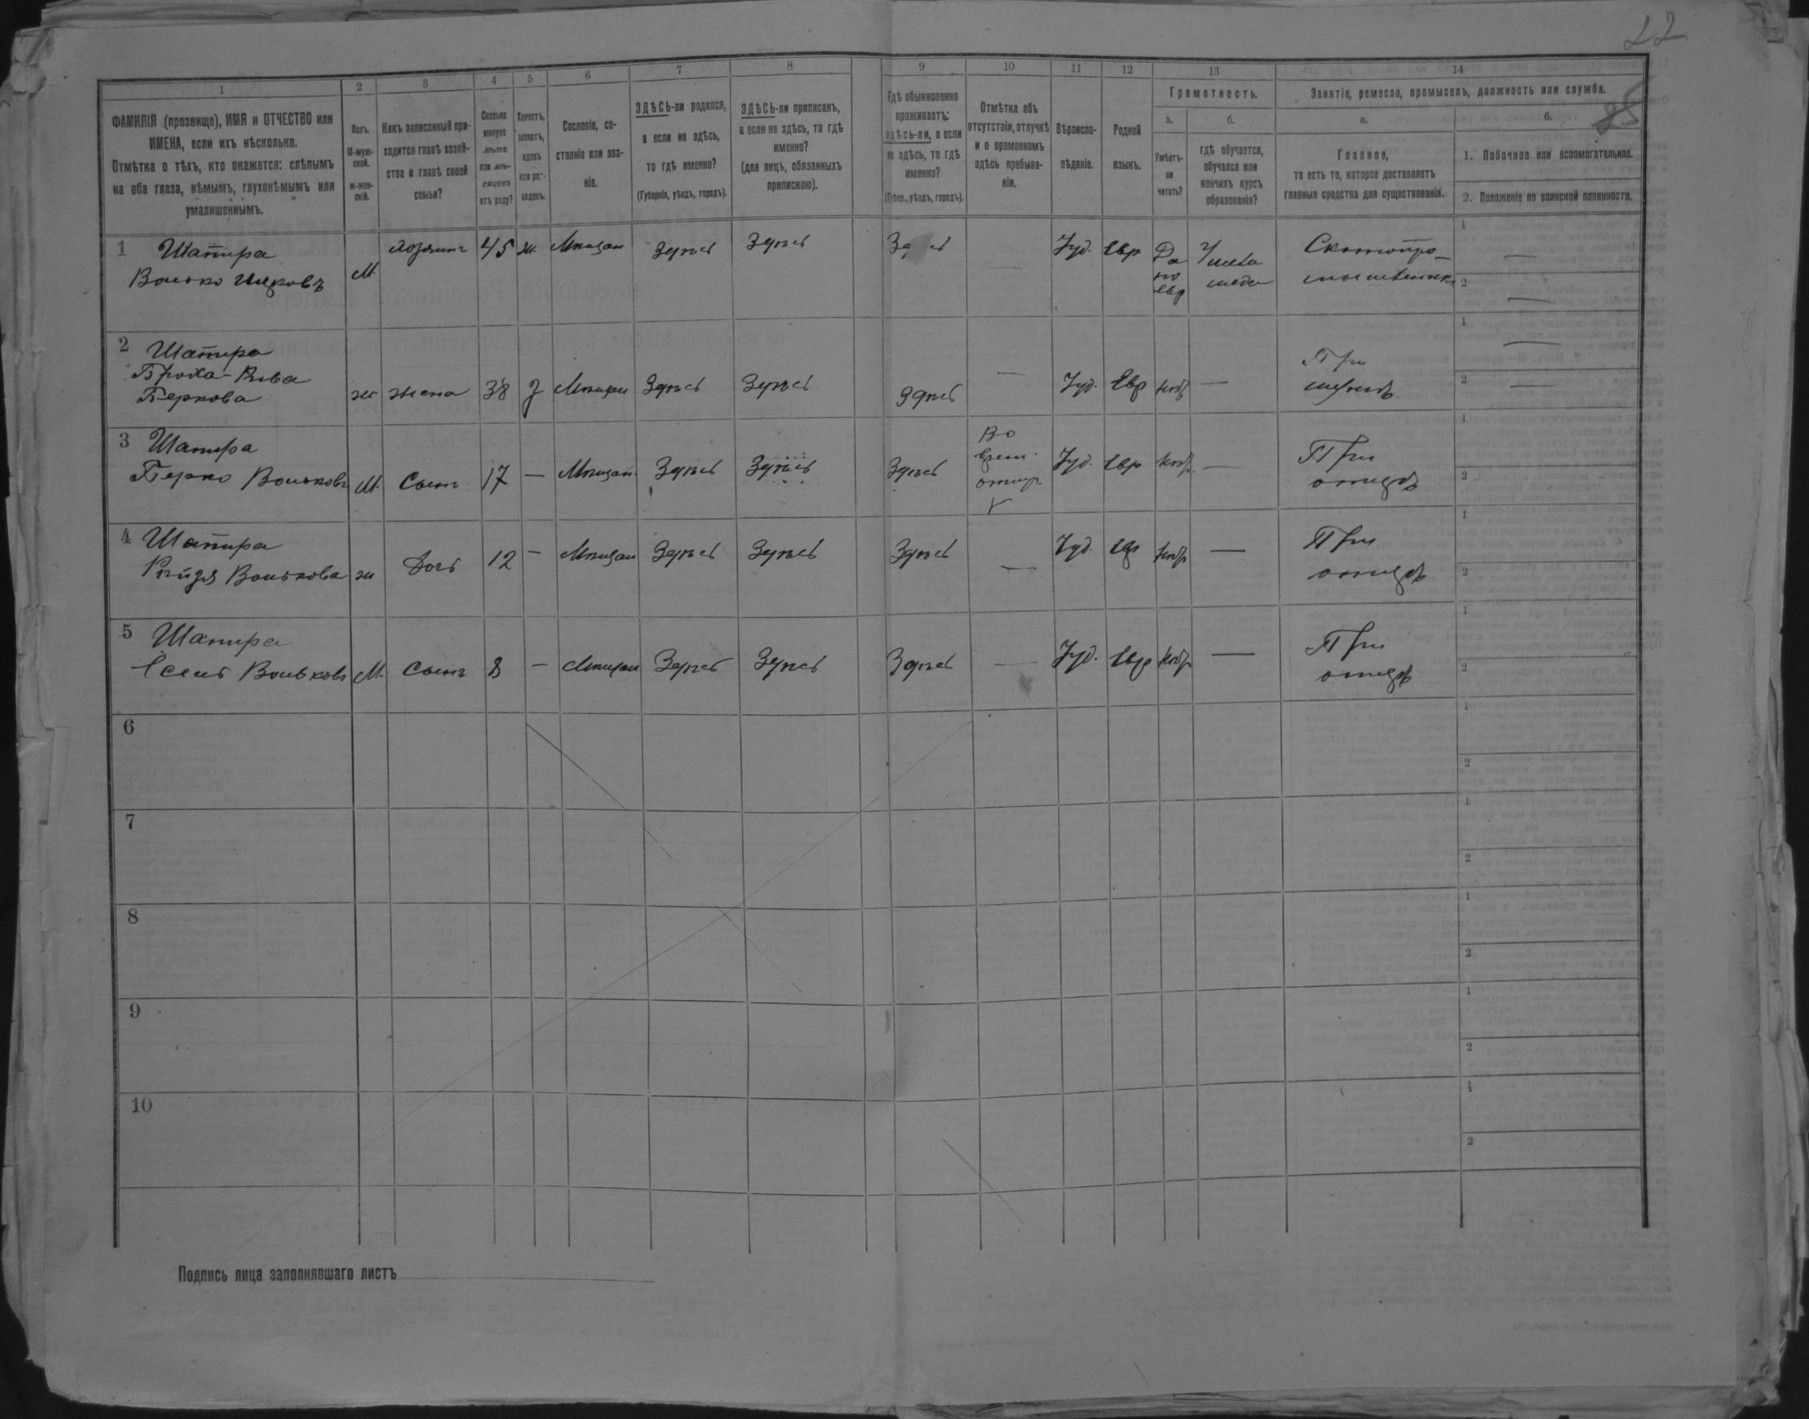 22
1
2
3
4
5
6
7
8
9
10
11
12
13
14
ФАМИЛІЯ (прозвище), ИМЯ и ОТЧЕСТВО или
ИМЕНА, если ихъ нѣсколько.
Отмѣтка о тѣхъ, кто окажется: слѣпымъ
на оба глаза, нѣмымъ, глухонѣмымъ или
умалишеннымъ.
Полъ.
М-муж-
ской.
ж-жен-
скій.
Какъ записанный при-
ходится главѣ хозяй-
ства и главѣ своей
семьи?
Сколько
минуло
лѣтъ
или мѣ-
сяцевъ
отъ роду?
Холостъ,
женатъ,
вдовъ
или раз-
веденъ.
Сословіе, со-
стояніе или зва-
ніе.
ЗДѢСЬ-ли родился,
а если не здѣсь,
то гдѣ именно?
(Губернія, уѣздъ, городъ).
ЗДѢСЬ-ли приписанъ,
а если не здѣсь, то гдѣ
именно?
(для лицъ, обязанныхъ
припискою).
Гдѣ обыкновенно
проживаетъ:
здѣсь-ли, а если
не здѣсь, то гдѣ
именно?
(Губер., уѣздъ, городъ).
Отмѣтка объ
отсутствіи, отлучкѣ
и о временномъ
здѣсь пребыва-
ніи.
Вѣроиспо-
вѣданіе.
Родной
языкъ.
Грамотность.
а.
б.
Умѣетъ-
ли
читать?
гдѣ обучается,
обучался или
кончилъ курсъ
образованія?
Занятіе, ремесло, промыселъ, должность или служба.
а.
б.
Главное,
то есть то, которое доставляетъ
главныя средства для существованія.
1. Побочное или вспомогательное.
2. Положеніе по воинской повинности.
1 Шапира
Волько Ицковъ
М
хозяинъ
45
ж.
Мѣщан
Здѣсь
Здѣсь
Іуд.
Евр
Да
по
Евр
Скотопро-
мышленник
1
2
2 Шапира
Броха-Рива
Беркова
ж
жена
38
Мѣщан
Здѣсь
Здѣсь
Здѣсь
—
Іуд.
Евр
—
При
мужѣ
1
2
3 Шапира
Берко Вольковъ
М.
Сынъ
17
—
Мѣщан
Здѣсь
Здѣсь
Здѣсь
Во
врем.
отлуч.
Іуд.
Евр
—
При
отцѣ
1
2
4 Шапира
Вольковa
ж
Дочь
12
—
Мѣщан
Здѣсь
Здѣсь
Здѣсь
—
Іуд.
Евр
—
При
отцѣ
1
2
5 Шапира
Вольковъ
М.
Сынъ
8
—
Мѣщан
Здѣсь
Здѣсь
Здѣсь
—
Іуд.
Евр
—
При
отцѣ
1
2
6
1
2
7
1
2
8
1
2
9
1
2
10
1
2
Подпись лица заполнявшаго листъ